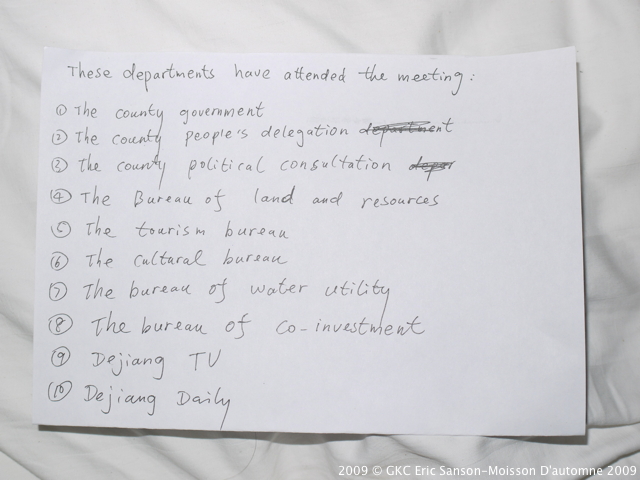 These departments have attended the meeting:
① The county government
② The county people's delegation department
③ The county political consultation depar
④ The Bureau of land and resources
⑤ The tourism bureau
⑥ The cultural bureau
⑦ The bureau of water utility
⑧ The bureau of co-investment
⑨ Dejiang TV
⑩ Dejiang Daily
2009 © GKC Eric Sanson-Moisson D'automne 2009